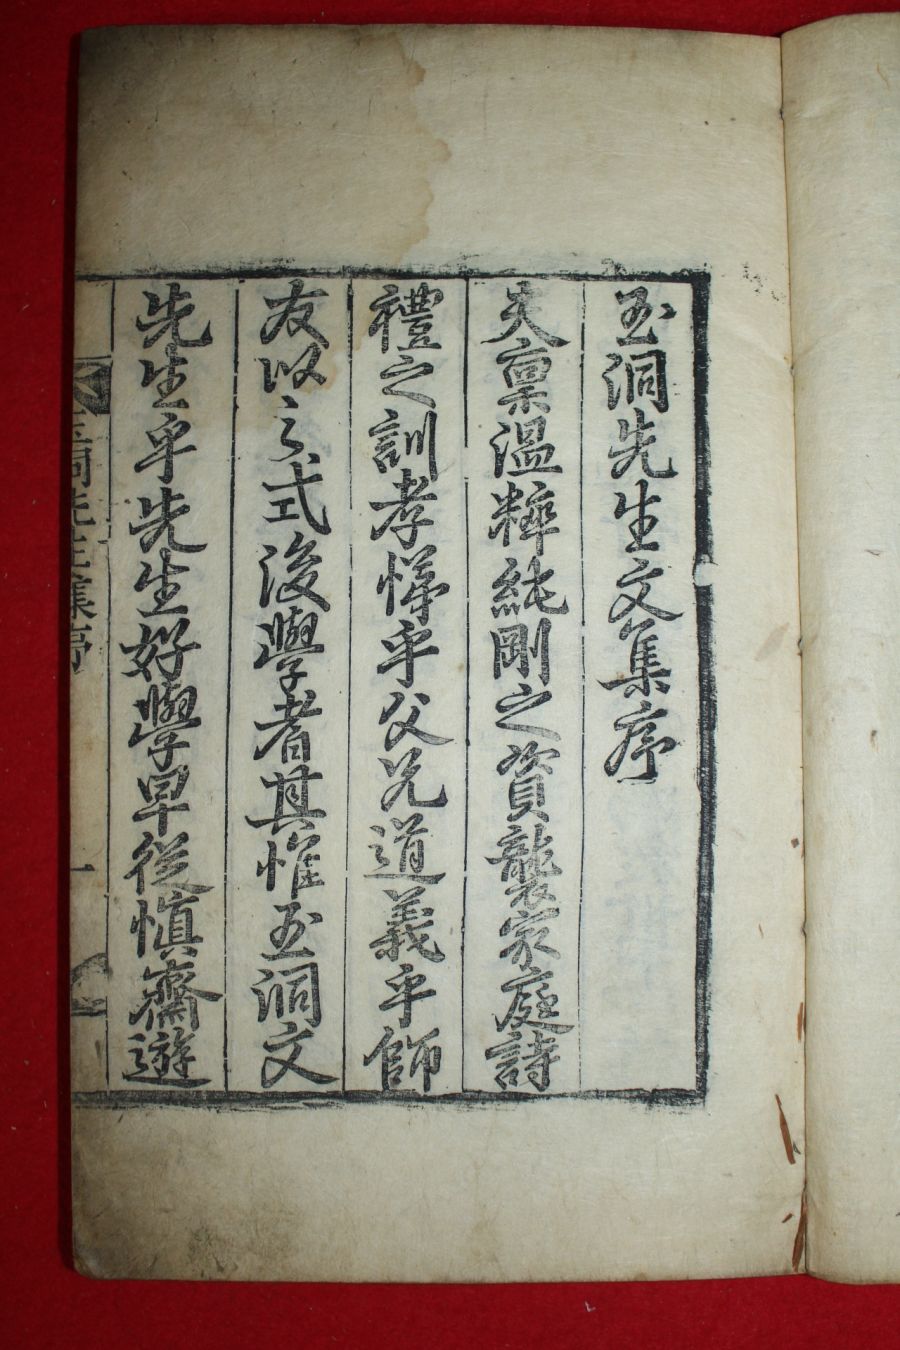 玉洞先生文集序
夫禀溫粹純剛之資襲家庭詩
禮之訓孝悌乎父兄道義乎師
友以之式後學者其惟玉洞文
先生乎先生好學早從愼齋遊
玉洞先生集序
一